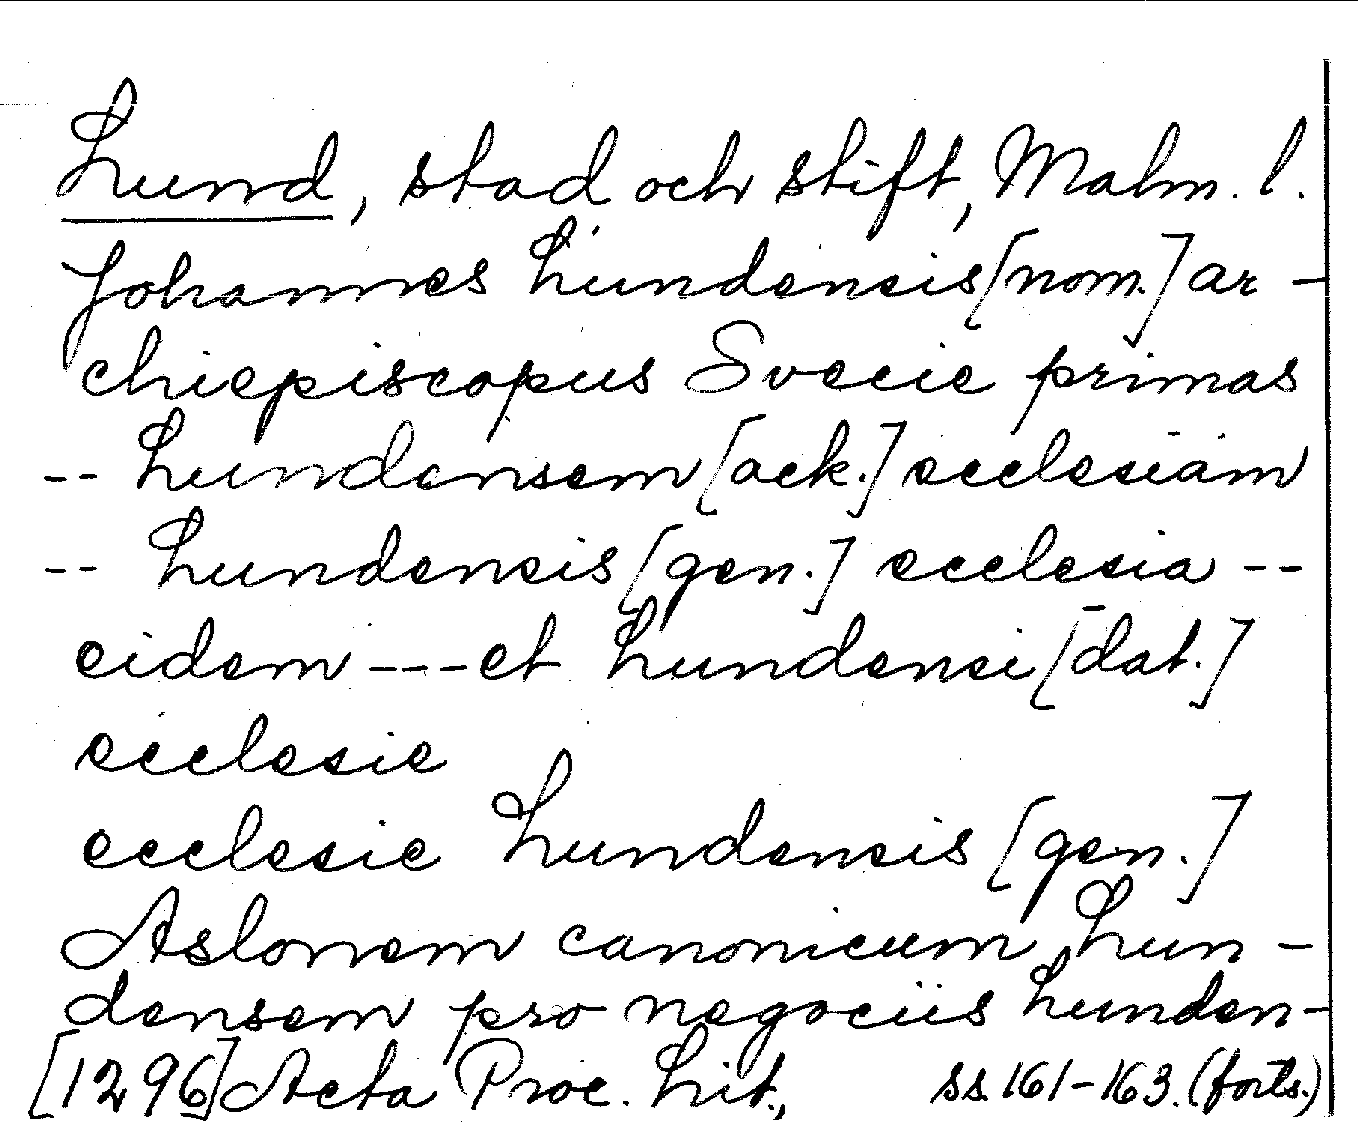 Lund, stad och stift, Malm. l.
Johannes Lundensis [nom.] ar-
chiepiscopus Svecie primas
-- Lundensem [ack.] ecclesiam
-- Lundensis [gen.] ecclesia --
eidem --- et Lundensi [dat.]
ecclesie
ecclesie Lundensis [gen.]
Aslonem canonicum Lun-
densem pro negociis Lunden-
[1296] Acta Proc. Lit., ss. 161-163. (forts.)